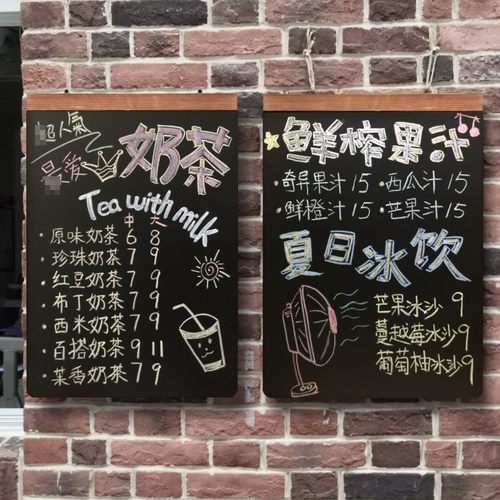 超人氣
最爱
奶茶
Tea with milk
中 大
·原味奶茶 6 8
·珍珠奶茶 7 9
·红豆奶茶 7 9
·布丁奶茶 7 9
·西米奶茶 7 9
·百搭奶茶 9 11
·茶香奶茶 7 9
鲜榨果汁
·奇异果汁 15 ·西瓜汁 15
·鲜橙汁 15 ·芒果汁 15
夏日冰饮
芒果冰沙 9
蔓越莓冰沙 9
葡萄柚冰沙 9